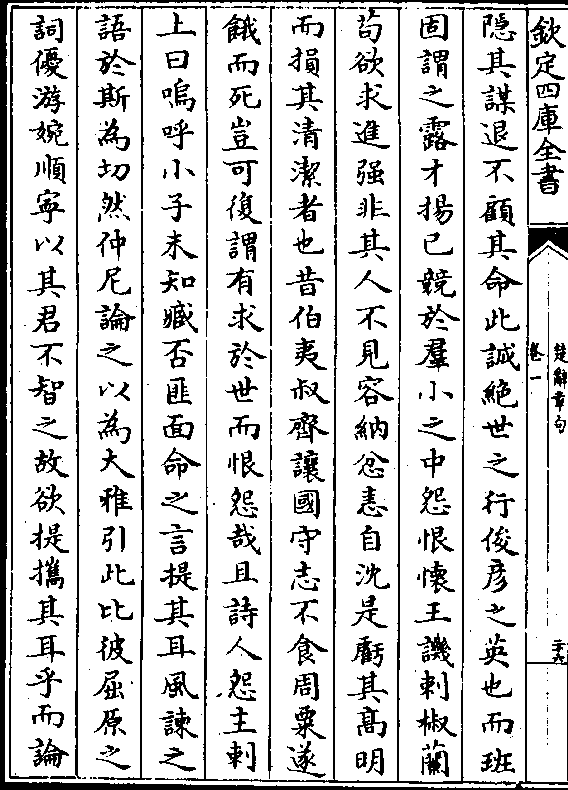 欽定四庫全書
楚辭章句
卷一
二十六
隠其謀退不顧其命此誠絶世之行俊彦之英也而班
固謂之露才揚已競於羣小之中怨恨懐王譏刺椒蘭
茍欲求進强非其人不見容納忿恚自沈是虧其髙明
而損其清潔者也昔伯夷叔齊讓國守志不食周粟遂
餓而死豈可復謂有求於世而恨怨哉且詩人怨主刺
上曰嗚呼小子未知臧否匪面命之言提其耳風諫之
語於斯為切然仲尼論之以為大雅引此比彼屈原之
詞優游婉順寧以其君不智之故欲提攜其耳乎而論